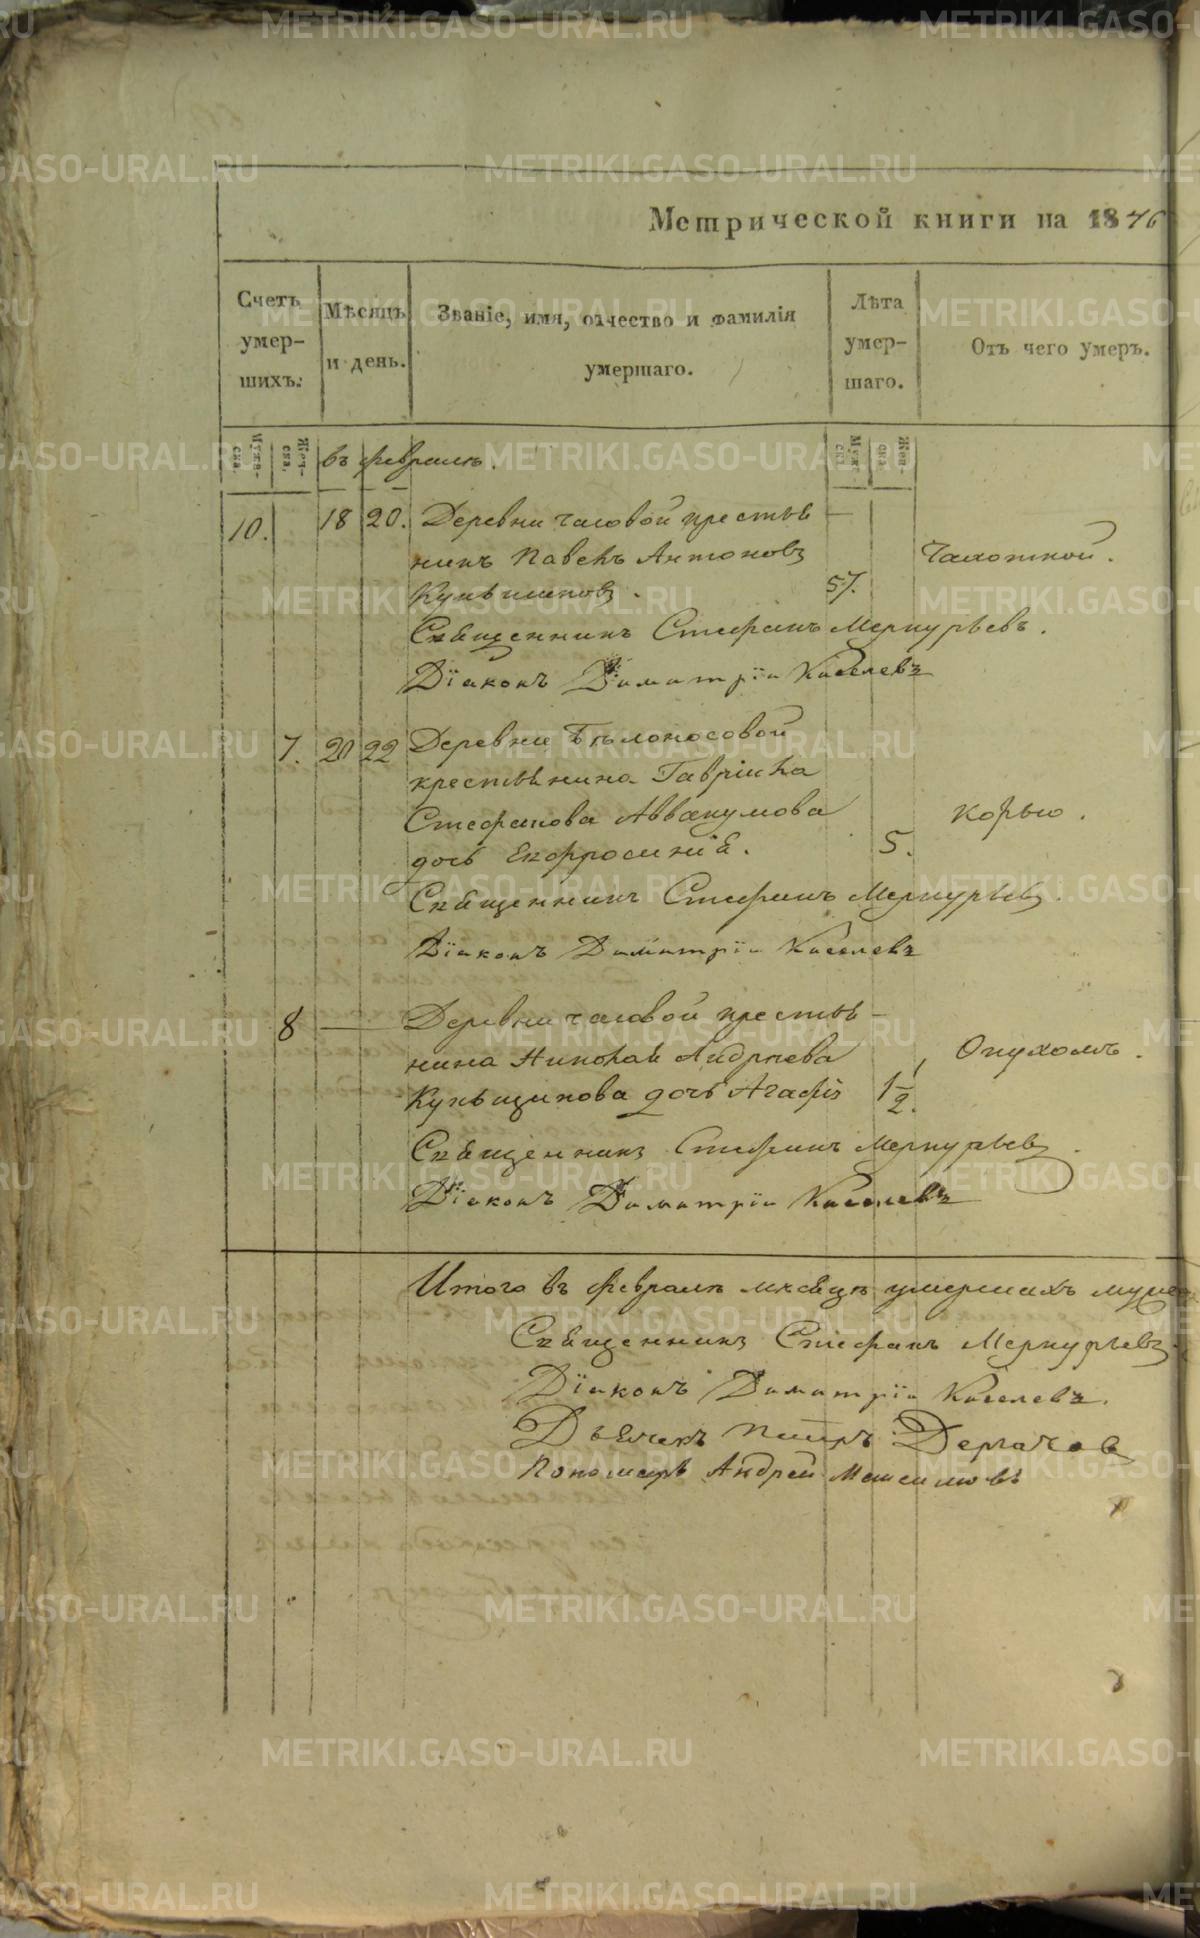 Метрической книги на 1846
Счетъ умер-шихъ.
Мѣсяцъ и день.
Званіе, имя, отчество и фамилія умершаго.
Лѣта умер-шаго.
Отъ чего умеръ.
Муже-ска.
Жен-ска.
въ февралѣ.
Муж-ска
Жен-ска
10. 18 20. Деревни Часовой крестья-
нинъ Павелъ Антоновъ Чахоткой.
57.
Священникъ Стефанъ Меркурьевъ.
Діаконъ Димитрій Киселевъ
7. 20 22 Деревни Бѣлоносовой
крестьянина Гавріила
Стефанова Аввакумова Корью.
дочь Евфросинія. 5.
Священникъ Стефанъ Меркурьевъ.
Діаконъ Димитрій Киселевъ
8 — Деревни Часовой крестья-
нина Николая Андреева Опухолъ.
дочь Агафія 1 1/2.
Священникъ Стефанъ Меркурьевъ.
Діаконъ Димитрій Киселевъ
Итого въ февралѣ мѣсяцѣ умершихъ
Священникъ Стефанъ Меркурьевъ.
Діаконъ Димитрій Киселевъ.
Дьячекъ Петръ Дергачов
Пономарь Андрей
METRIKI.GASO-URAL.RU